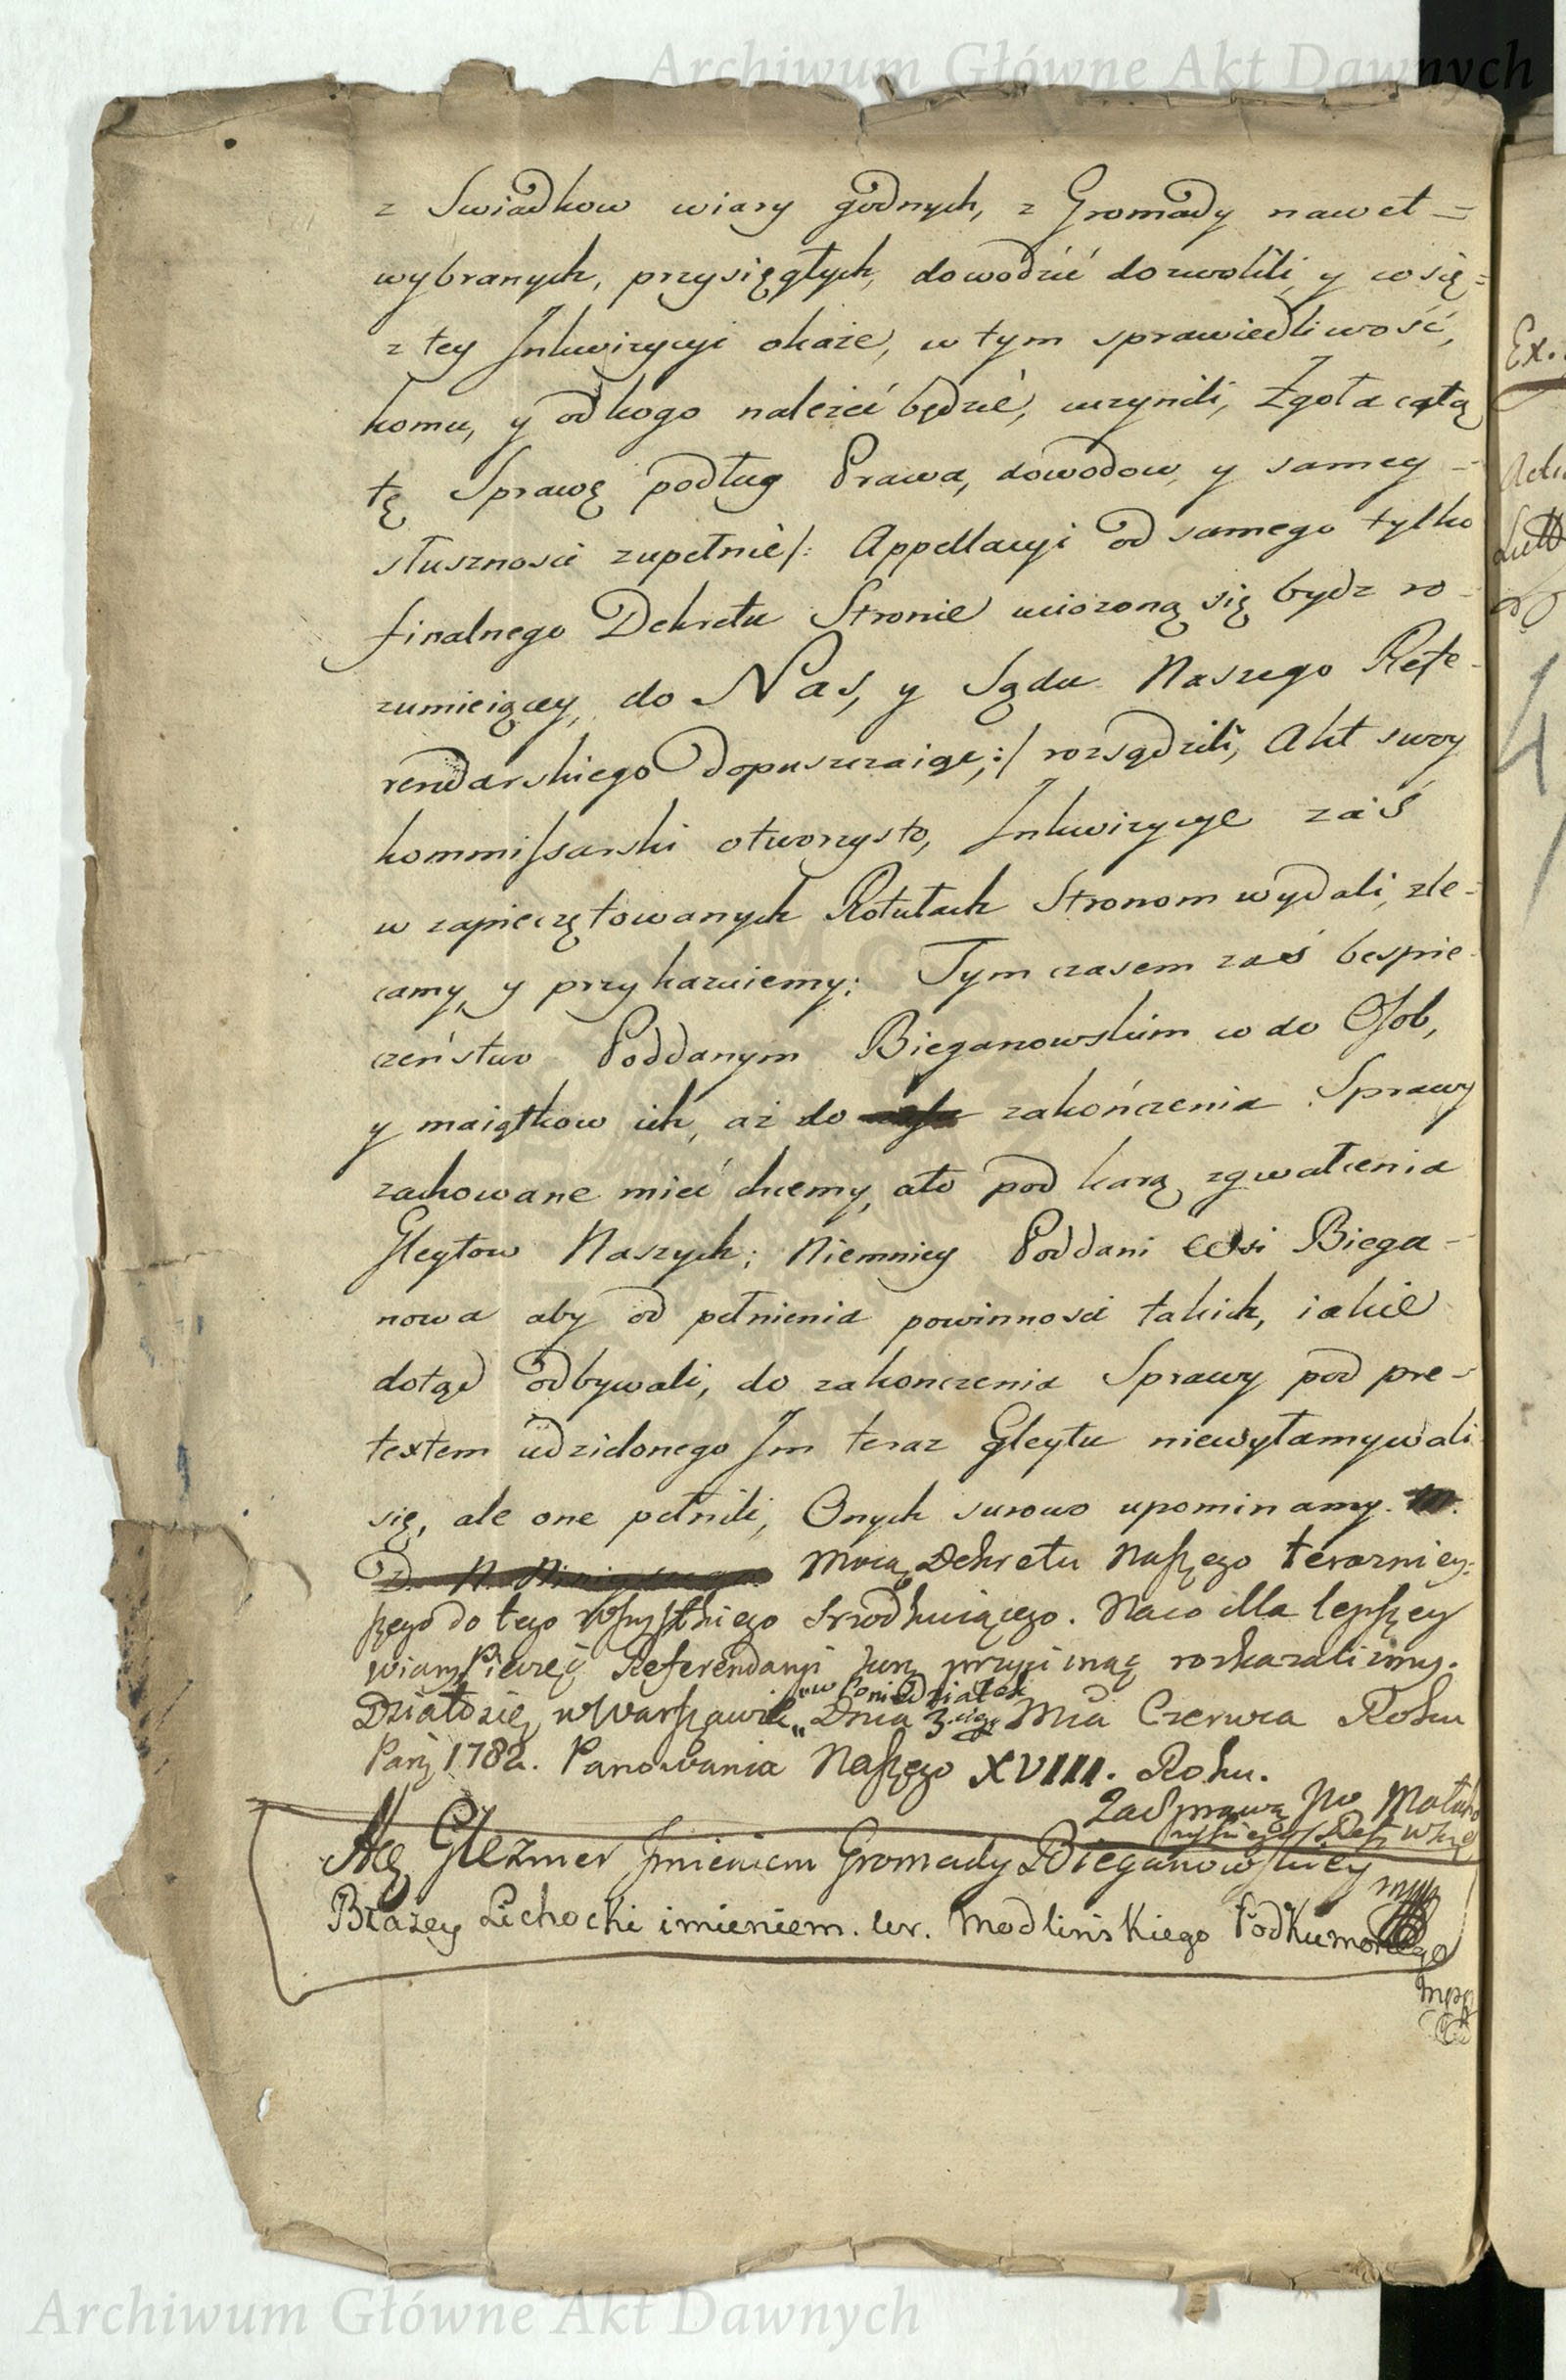 Archiwum Główne Akt Dawnych
z Swiadkow wiary godnych, z Gromady nawet =
wybranych, przysięgłych, dowodzić dozwolili, y co się =
z tey Inkwizycyi okaże, w tym sprawiedliwość,
komu, y od kogo należeć będzie, uczynili, Zgoła całą
tę Sprawę podług Prawa, dowodow, y samey -
słusznosci zupełnie /: Appellacyi od samego tylko
finalnego Dekretu Stronie uciążoną się bydz ro -
zumieiącey, do Nas, y Sądu Naszego Refe -
rendarskiego dopuszczaiąc, :/ rozsądzili, Akt swoy
kommissarski otworzysto, Inkwizycye zaś
w zapieczętowanych Rotułach Stronom wydali, zle -
camy, y przykazuiemy; Tym czasem zaś bespie -
czeństwo Poddanym Bieganowskim co do Osob,
y maiątkow ich, aż do zakończenia Sprawy
zachowane mieć chcemy, a to pod karą zgwałcenia
Gleytow Naszych; Niemniey Poddani Wsi Biega -
nowa aby od pełnienia powinnosci takich, iakie
dotąd odbywali, do zakonczenia Sprawy pod pre -
textem udzielonego Im teraz Gleytu niewyłamywali
się, ale one pełnili, Onych surowo upominamy.
Mocą Dekretu Naszego terazniey-
szego do tego wszystkiego srzodkuiącego. Na co dla lepszey
wiary Pieczęć Referendaryi Kor. przycisnąć roskazalismy.
w Poniedziałek
Działo się w Warszawie Dnia 3. Mca Czerwca Roku
Pań. 1782. Panowania Naszego XVIII. Roku.
Za Sprawą
Glezmer Imieniem Gromady Bieganowskiey
mpp
Błażey Lichocki imieniem. Ur. Modlinskiego Podkumorzego
mpp
Ex.
4
Archiwum Główne Akt Dawnych